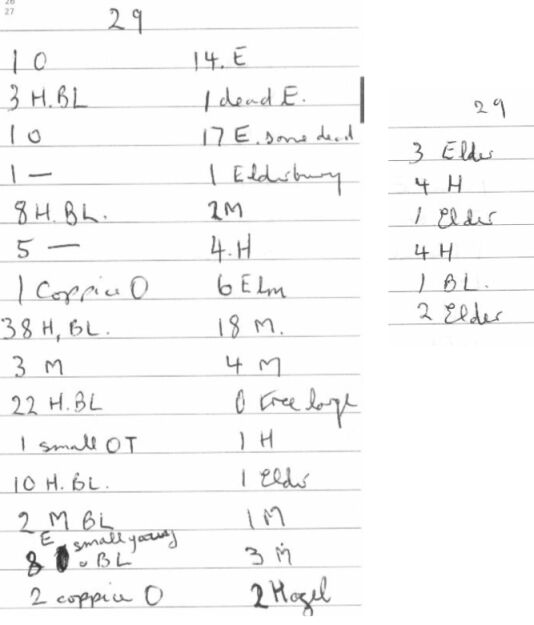 26
27
29
1 O
3 H.BL
1 O
1 —
8 H.BL.
5 —
1 Coppice O
38 H, BL.
3 M
22 H.BL
1 small OT
10 H.BL.
2 M BL
E small young
8 BL
2 coppice O
14. E
1 dead E.
17 E. some dead
1 Elderbury
2M
4.H
6 Elm
18 M.
4 M
O tree large
1 H
1 Elder
1 M
3 M
2 Hazel
29
3 Elder
4 H
1 Elder
4 H
1 BL.
2 Elder